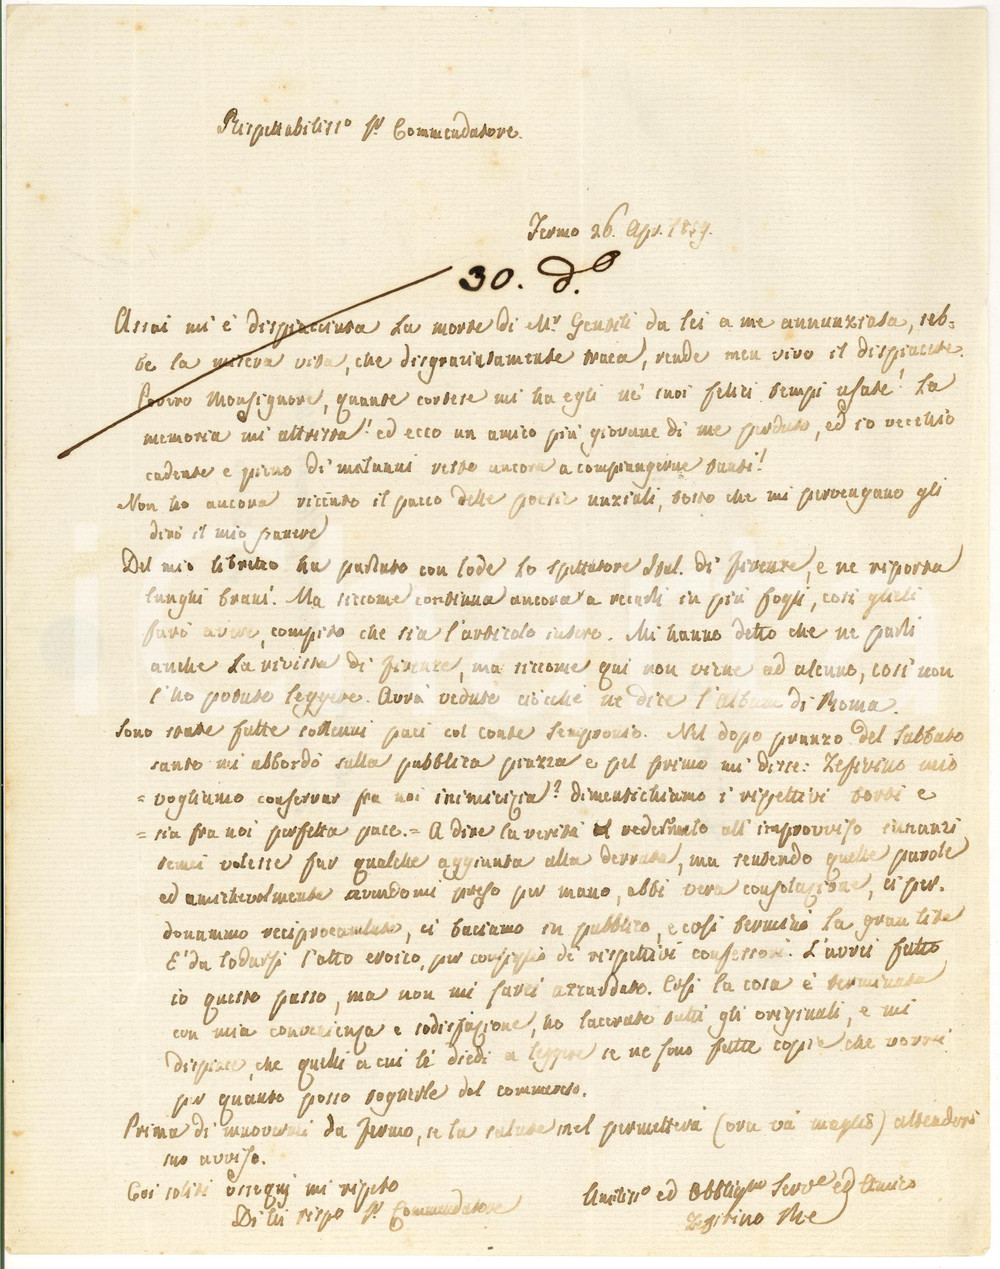 Rispettabiliss.o Sr Commendatore.
Fermo 26. Apr. 1859.
30. do
Assai mi è dispiacciuta la morte di Mr Gentili da lei a me annunziata, seb=
be la misera vita, che disgraziatamente traea, rende men vivo il dispiacere.
Povero Monsignore, quante cortese mi ha egli ne' suoi felici tempi usate! La
memoria mi attrista! ed ecco un amico più giovane di me perduto, ed io vecchio
cadente e pieno di malanni resto ancora a compiangerne tanti!
Non ho ancora ricevuto il pacco delle poesie nuziali, tosto che mi pervengano gli
dirò il mio parere
Del mio libretto ha parlato con lode lo spettatore Ital. di Firenze, e ne riporta
lunghi brani. Ma siccome continua ancora a recarli in più fogli, così glieli
farò avere, compito che sia l'articolo intero. Mi hanno detto che ne parli
anche la rivista di Firenze, ma siccome qui non viene ad alcuno, così non
l'ho potuto leggere. Avrà veduto ciocchè ne dice l'album di Roma.
Sono state fatte sollenni paci col conte Sempronio. Nel dopo pranzo del Sabbato
santo mi abbordò sulla pubblica piazza e pel primo mi disse: Zefirino mio
= vogliamo conservar fra noi inimicizia? dimentichiamo i rispettivi torti e
= sia fra noi perfetta pace. = A dire la verità vedermelo all'improvviso innanzi
temei volesse far qualche aggiunta alla derrata, ma sentendo quelle parole
ed amichevolmente avendomi preso per mano, ebbi vera consolazione, ci per=
donammo reciprocamente, ci baciamo in pubblico, e così terminò la gran lite
E' da lodarsi l'atto eroico, per consiglio de' rispettivi confessori. L'avrei fatto
io questo passo, ma non mi sarei azzardato. Così la cosa è terminata
con mia convenienza e sodisfazione, ho lacerate tutti gli originali, e mi
dispiace, che quelli a cui li diedi a leggere se ne sono fatte copie che vorrei
per quanto posso toglierle dal commercio.
Prima di muovermi da Fermo, se la salute mel permetterà (ora va meglio) attenderò
suo avviso.
Coi soliti ossequj mi ripeto
Di lei rispo Sr Commendatore
Amiciss.o ed Obbligmo Serve ed Amico
Zefirino Re